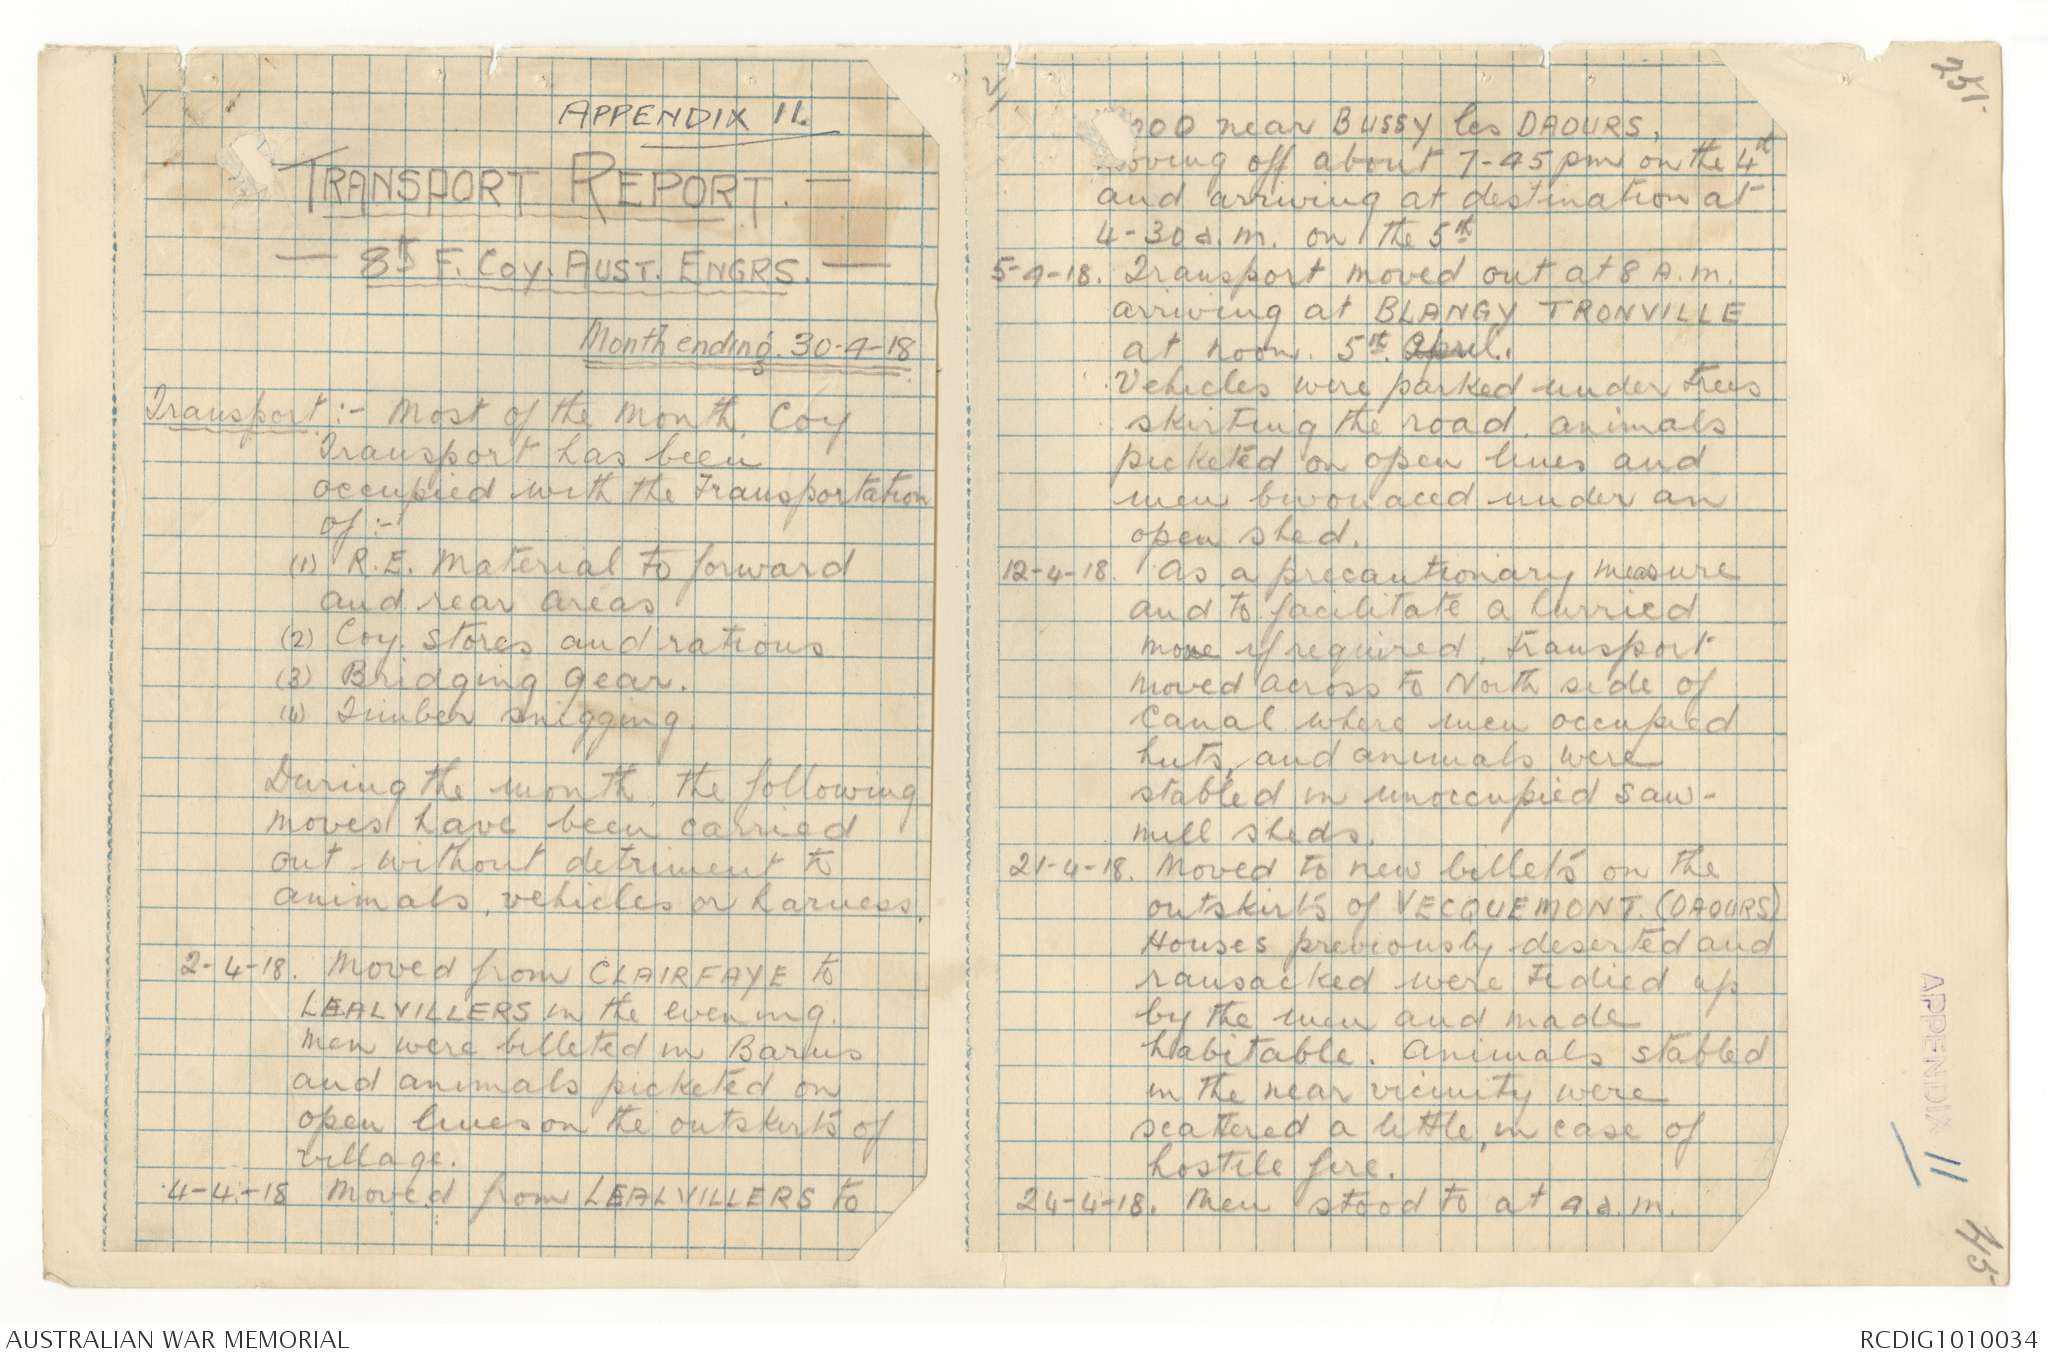 APPENDIX 11.
TRANSPORT REPORT. —
— 8th F. Coy. AUST. ENGRS. —
Month ending. 30-4-18
Transport :- Most of the month, Coy
Transport has been
occupied with the transportation
of :-
(1) R.E. Material to forward
and rear areas
(2) Coy. stores and rations
(3) Bridging gear.
(4) Timber snigging.
During the month, the following
moves have been carried
out without detriment to
animals, vehicles or harness.
2-4-18. Moved from CLAIRFAYE to
LEALVILLERS in the evening.
Men were billeted in Barns
and animals picketed on
open lines on the outskirts of
village.
4-4-18 Moved from LEALVILLERS to
near BUSSY les DAOURS,
moving off about 7-45 pm on the 4th
and arriving at destination at
4-30 a.m. on the 5th
5-4-18. Transport moved out at 8 A.M.
arriving at BLANGY TRONVILLE
at noon. 5th April.
Vehicles were parked under trees
skirting the road, animals
picketed on open lines and
men bivouaced under an
open shed.
12-4-18. As a precautionary measure
and to facilitate a hurried
move if required, transport
moved across to North side of
Canal where men occupied
huts, and animals were
stabled in unoccupied saw-
mill sheds.
21-4-18. Moved to new billets on the
outskirts of VECQUEMONT. (DAOURS)
Houses previously deserted and
ransacked were tidied up
by the men and made
habitable. Animals stabled
in the near vicinity were
scattered a little, in case of
hostile fire.
24-4-18. Men stood to at 4 a.m.
251.
APPENDIX 11
45
AUSTRALIAN WAR MEMORIAL
RCDIG1010034